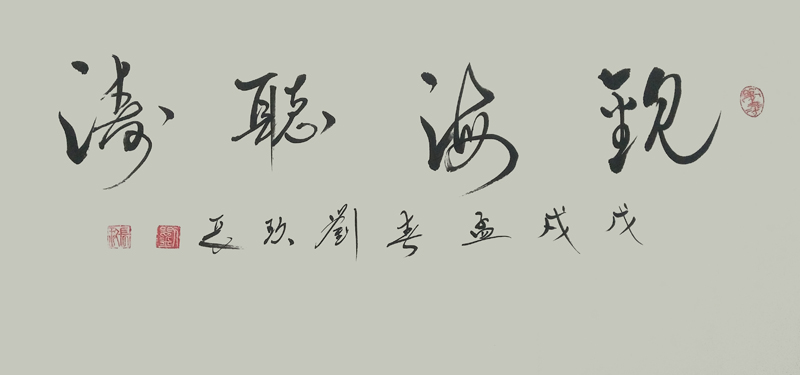 觀海聽濤
戊戌孟春劉欣長